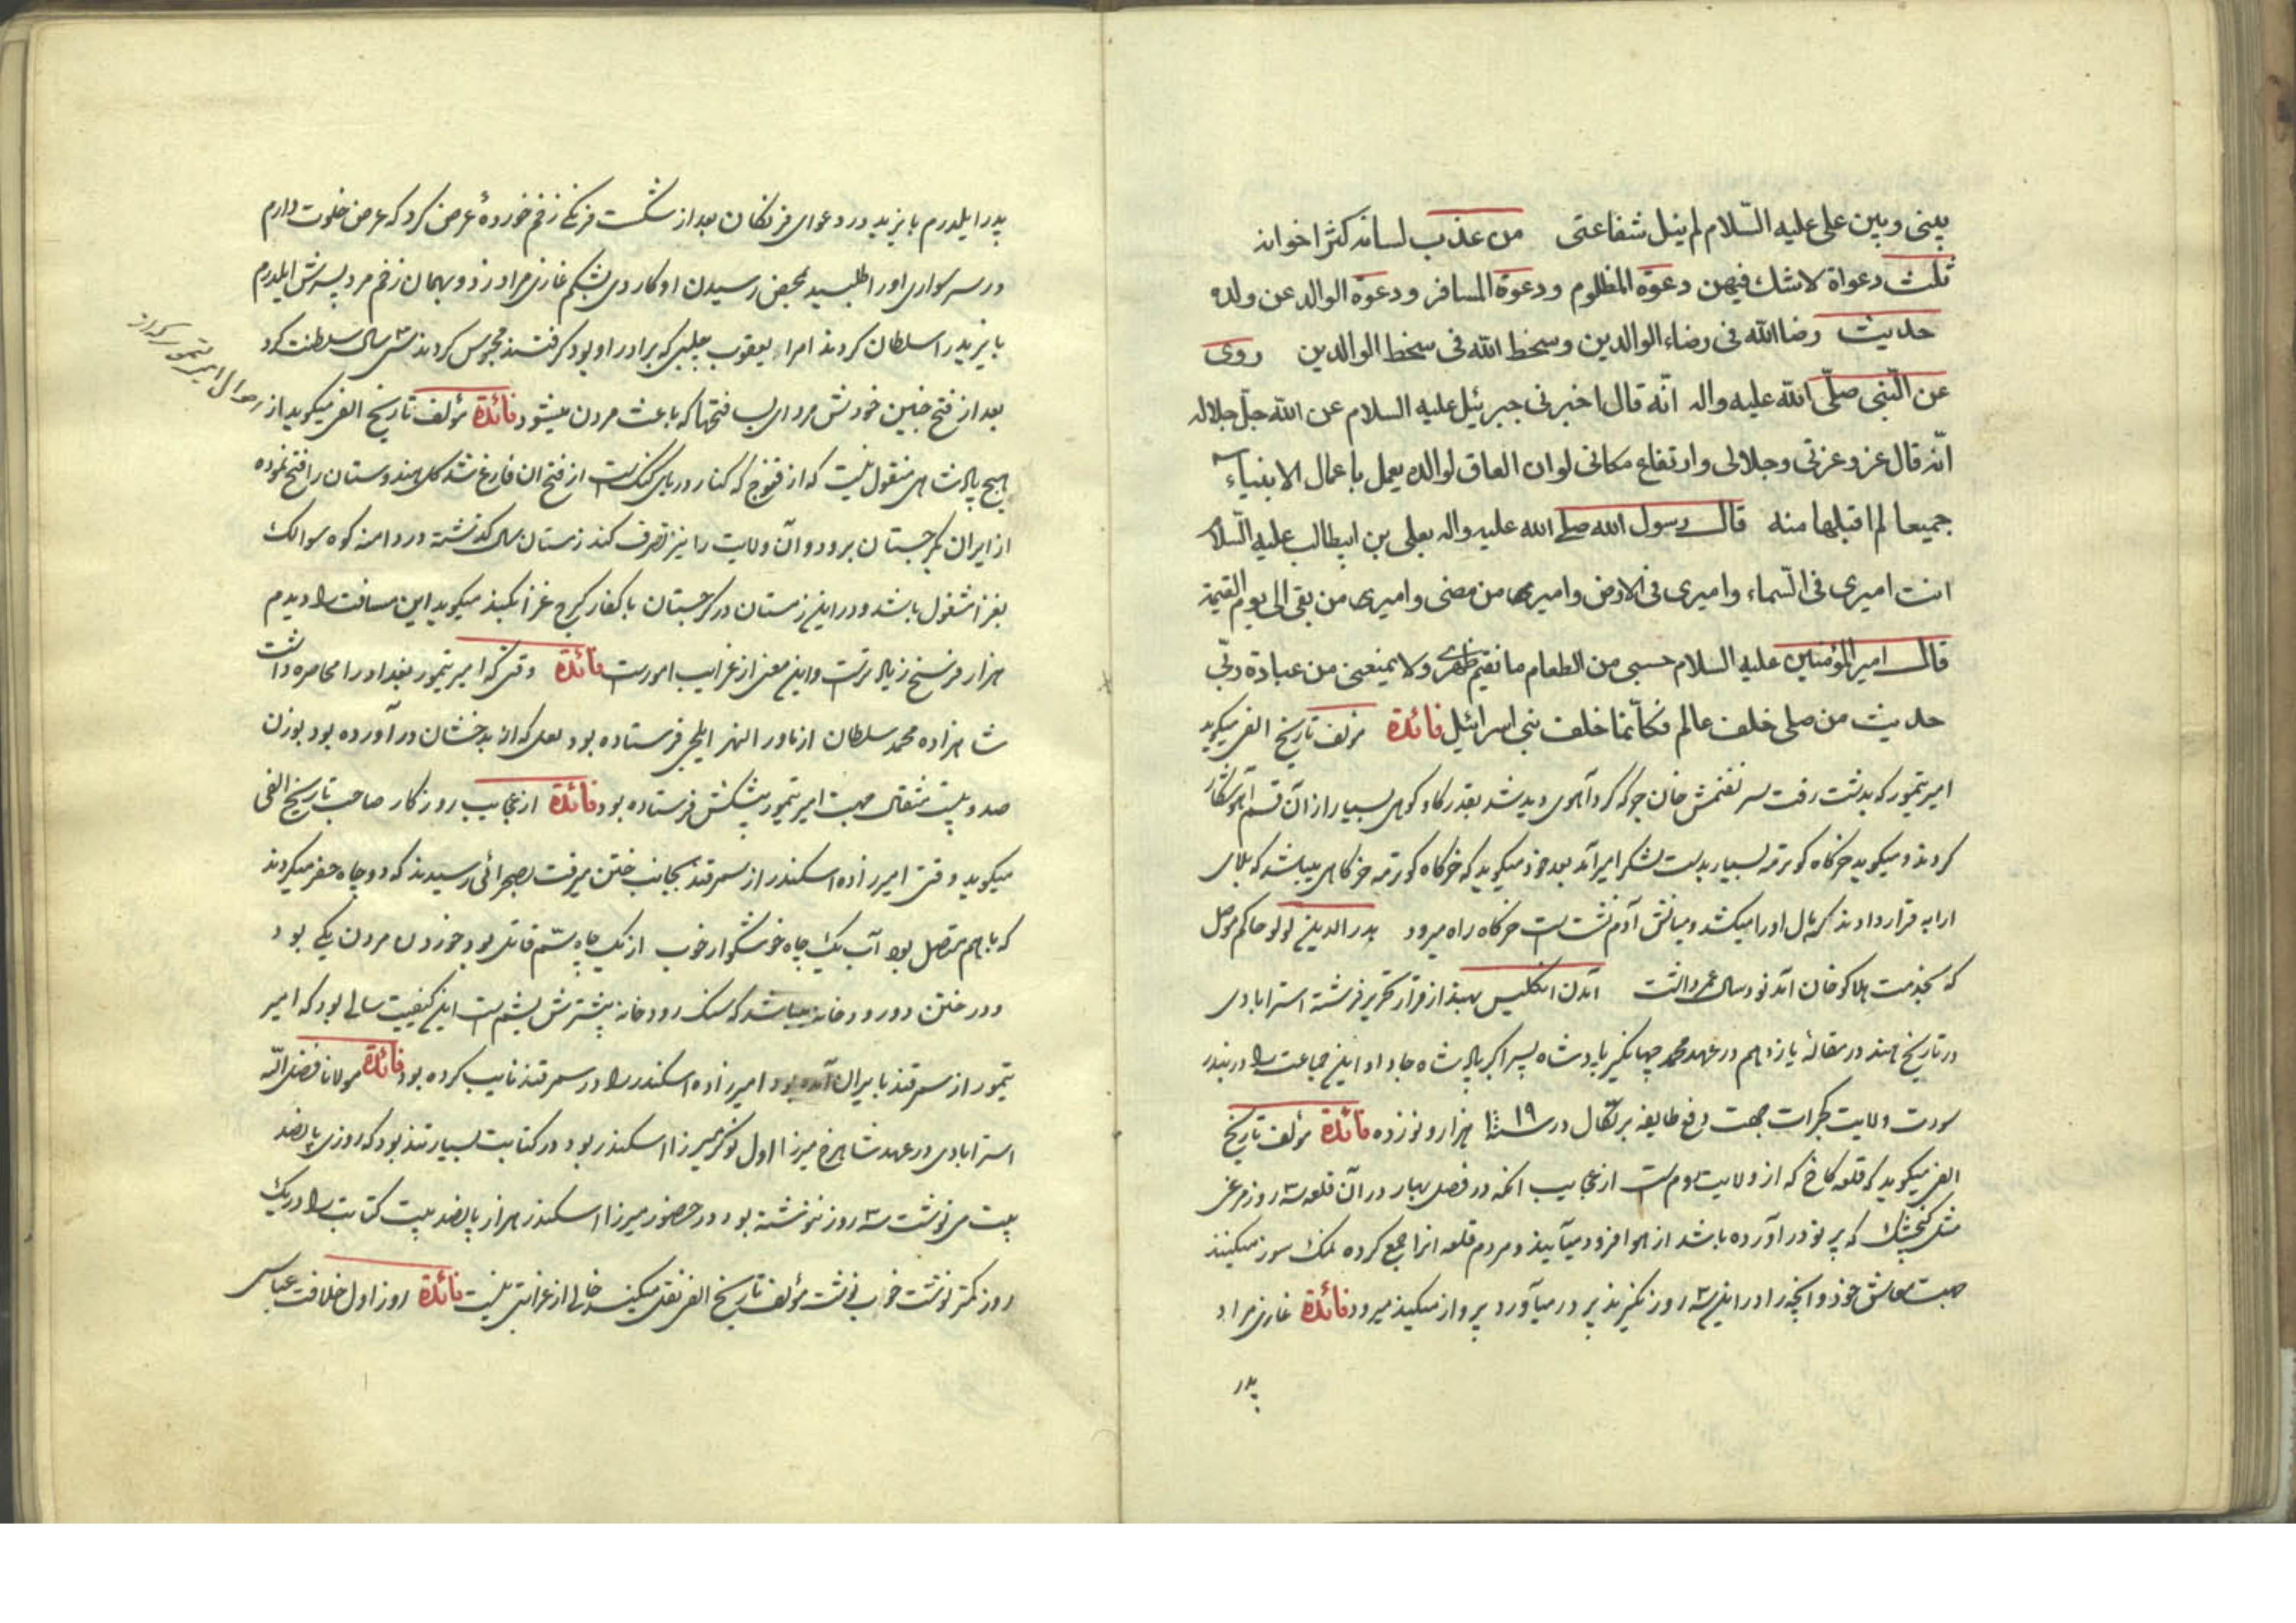 بینی وبین علی علیه السّلام لم ینل شفاعتی من عذب لسانه کثر اخوانه
ثلث دعواة لاشك فیهن دعوة المظلوم ودعوة المسافر ودعوة الوالد عن ولده
حدیث رضا الله فی رضاء الوالدین وسخط الله فی سخط الوالدین روی
عن النّبی صلّی الله علیه واله انّه قال اخبرنی جبرئیل علیه السلام عن الله جلّ جلاله
انّه قال عز وعزتی وجلالی وارتفاع مکانی لو ان العاق لوالده یعمل باعمال الانبیاء
جمیعا لم اقبلها منه قال رسول الله صلی الله علیه واله بعلی بن ابیطالب علیه السّلام
انت امیری فی السّماء وامیری فی الارض وامیری من مضی وامیری من بقی الی یوم القیمة
قال امیر المؤمنین علیه السلام حسبی من الطعام ما نقیم ظهری ولا یمنعنی من عبادة ربّی
حدیث من صلی خلف عالم فکانّما خلف بنی اسرائیل فائدة مؤلف تاریخ الفی میکوید
امیر تیمور که بدشت رفت بسر تقتمش خان جرکه کرد آهوی دیدند بقدر کاو کوهی بسیار از آن قسم آهو شکار
کردند و میکوید خرکاه کوترمه بسیار بدست لشکر امیر آمد بعد خود میکوید که خرکاه کوترمه خرکاهی میباشد که بالای
ارابه قرار دادند که مال اورا میکشد ومیانش آدم نشسته است خرکاه راه میرود بدر الدین لولو حاکم موصل
که بخدمت هلاکو خان آمد نود سال عمر داشت آمدن انکلیس بهند از قرار تحریر فرشته استرابادی
در تاریخ هند در مقالهٔ یازدهم در عهد محمد جهانکیر پادشاه پسر اکبر پادشاه جا داد این جماعت را در بندر
سورت ولایت کجرات جهت دفع طایفه پرتکال در سنه ۱۰۱۹ هزار و نوزده فائدة مؤلف تاریخ
الفی میکوید که قلعه کاخ که از ولایت روم است از عجایب آنکه در فصل بهار در آن قلعه سه روز مرغی
مثل کنجشك که پر نو در آورده باشد از هوا فرود میآیند ومردم قلعه انرا جمع کرده نمك سود میکنند
جهت معاش خود وانچه را در این سه روز نکیرند پر در میآورد پرواز میکند میرود فائدة غازی مراد
پدر
پدر ایلدرم بایزید در دعوای فرنکان بعد از شکست فرنکی زخم خوردهٔ عرض کرد که عرض خلوت دارم
در سر سواری اورا طلبید بمحض رسیدن او کاردی بشکم غازی مراد زد و بهمان زخم مرد پسرش ایلدرم
بایزید را سلطان کردند امراء یعقوب چلبی که برادر او بود کرفتند محبوس کردند سی سال سلطنت کرد
بعد از فتح چنین خودش مرد ای بسا فتحها که باعث مردن میشود فائدة مؤلف تاریخ الفی میکوید از
احوال امیر تیمور که از
هیچ پادشاهی منقول نیست که از قنوج که کنار دریای کنك است از فتح ان فارغ شد کل هندوستان را فتح نموده
از ایران بکرجستان برود وآن ولایت را نیز تصرف کند زمستان سال کذشته در دامنه کوه سوالك
بغزا مشغول باشد ودر این زمستان در کرجستان با کفار کرج غزا بکند میکوید این مسافت را دیدم
هزار فرسخ زیادتر است واین معنی از غرایب امور است فائدة وقتی که امیر تیمور بغداد را محاصره داشت
شاهزاده محمد سلطان از ماوراء النهر ایلچی فرستاده بود لعلی که از بدخشان در آورده بود بوزن
صد و بیست مثقال جهت امیر تیمور پیشکش فرستاده بود فائدة از عجایب روزکار صاحب تاریخ الفی
میکوید وقتی امیرزاده اسکندر از سمرقند بجانب ختن میرفت بصحرائی رسیدند که دو چاه حفر میکردند
که باهم متصل بود آب یك چاه خوشکوار خوب از یك چاه سم قاتل بود خوردن مردن یکی بود
ودر ختن دو رودخانه میباشد که سنك رودخانه بیشترش یشم است این کیفیت سالی بود که امیر
تیمور از سمرقند بایران آمده بود امیرزاده اسکندر را در سمرقند نایب کرده بود فائدة مولانا فضل الله
استرابادی در عهد شاهرخ میرزا اول نوکر میرزا اسکندر بود در کتابت بسیار تند بود که روزی پانصد
بیت می نوشت سه روز ننوشته بود در حضور میرزا اسکندر هزار پانصد بیت کتابت را در یك
روز کمتر نوشت خوب نوشت مؤلف تاریخ الفی نقل میکند خالی از غرابتی نیست فائدة روز اول خلافت عباسی